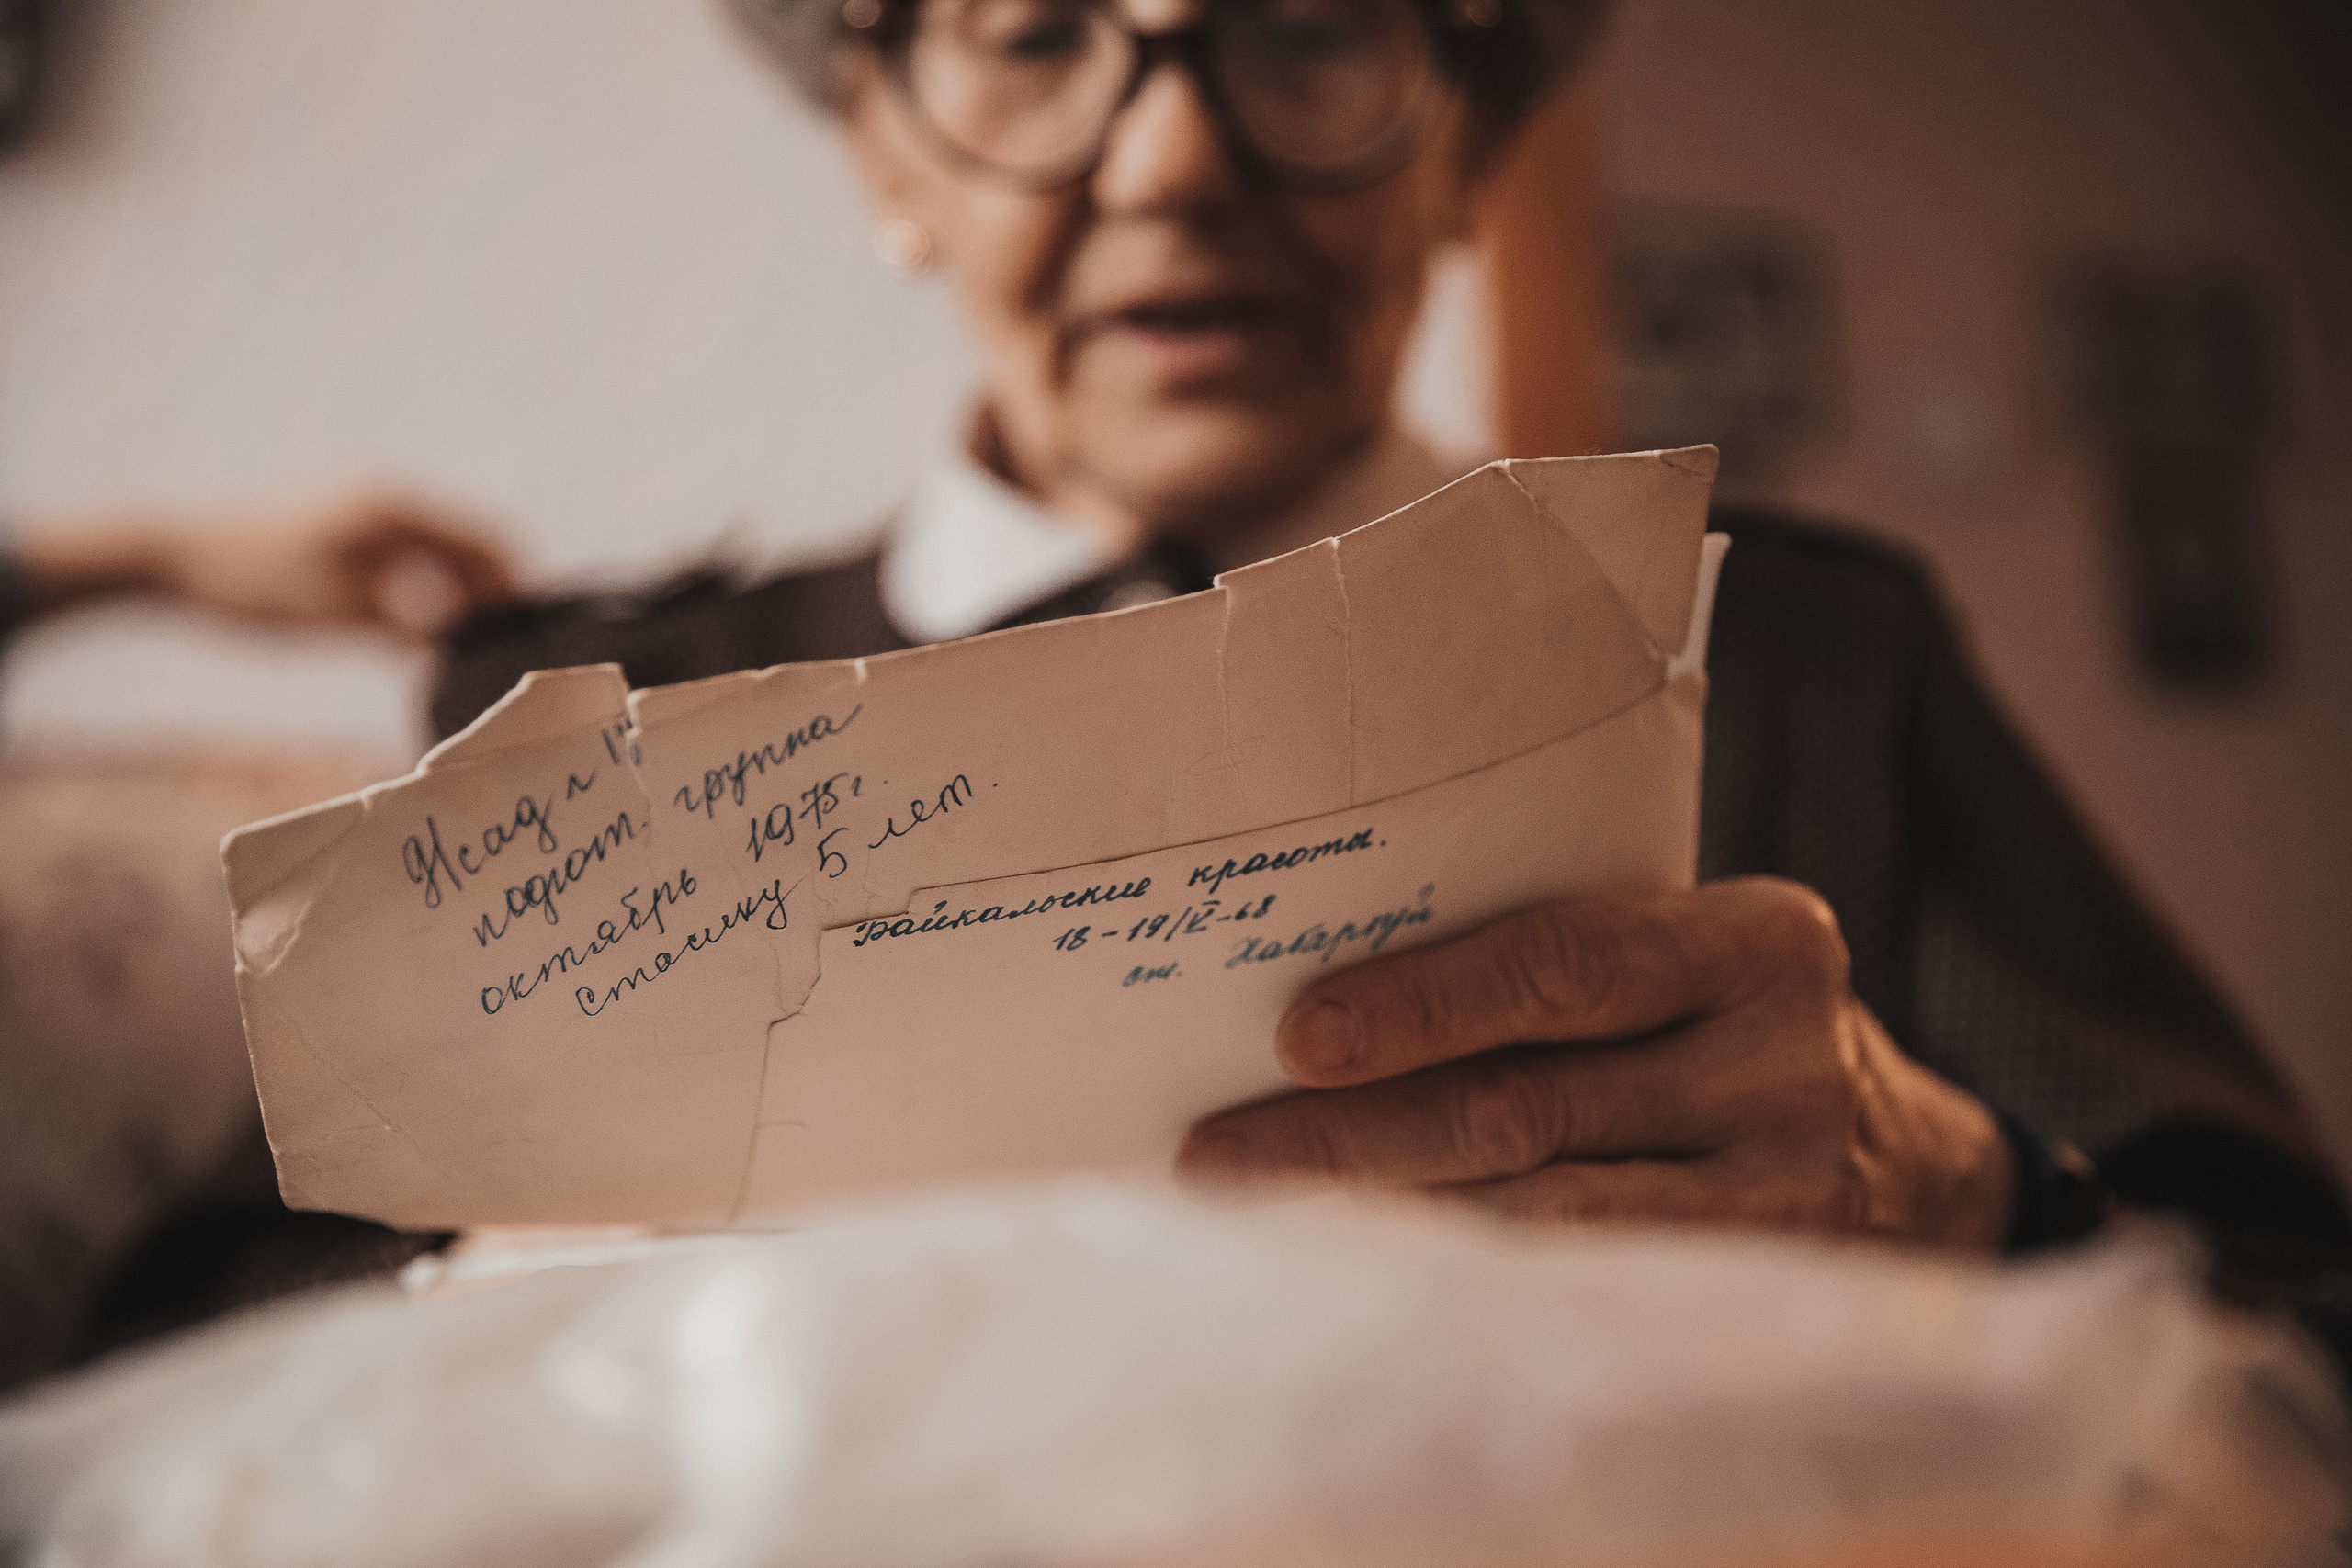 подгот. группа
октябрь 1975г.
Стасику 5 лет.
Байкальские красоты.
18-19/V-68
ст. Хабартуй